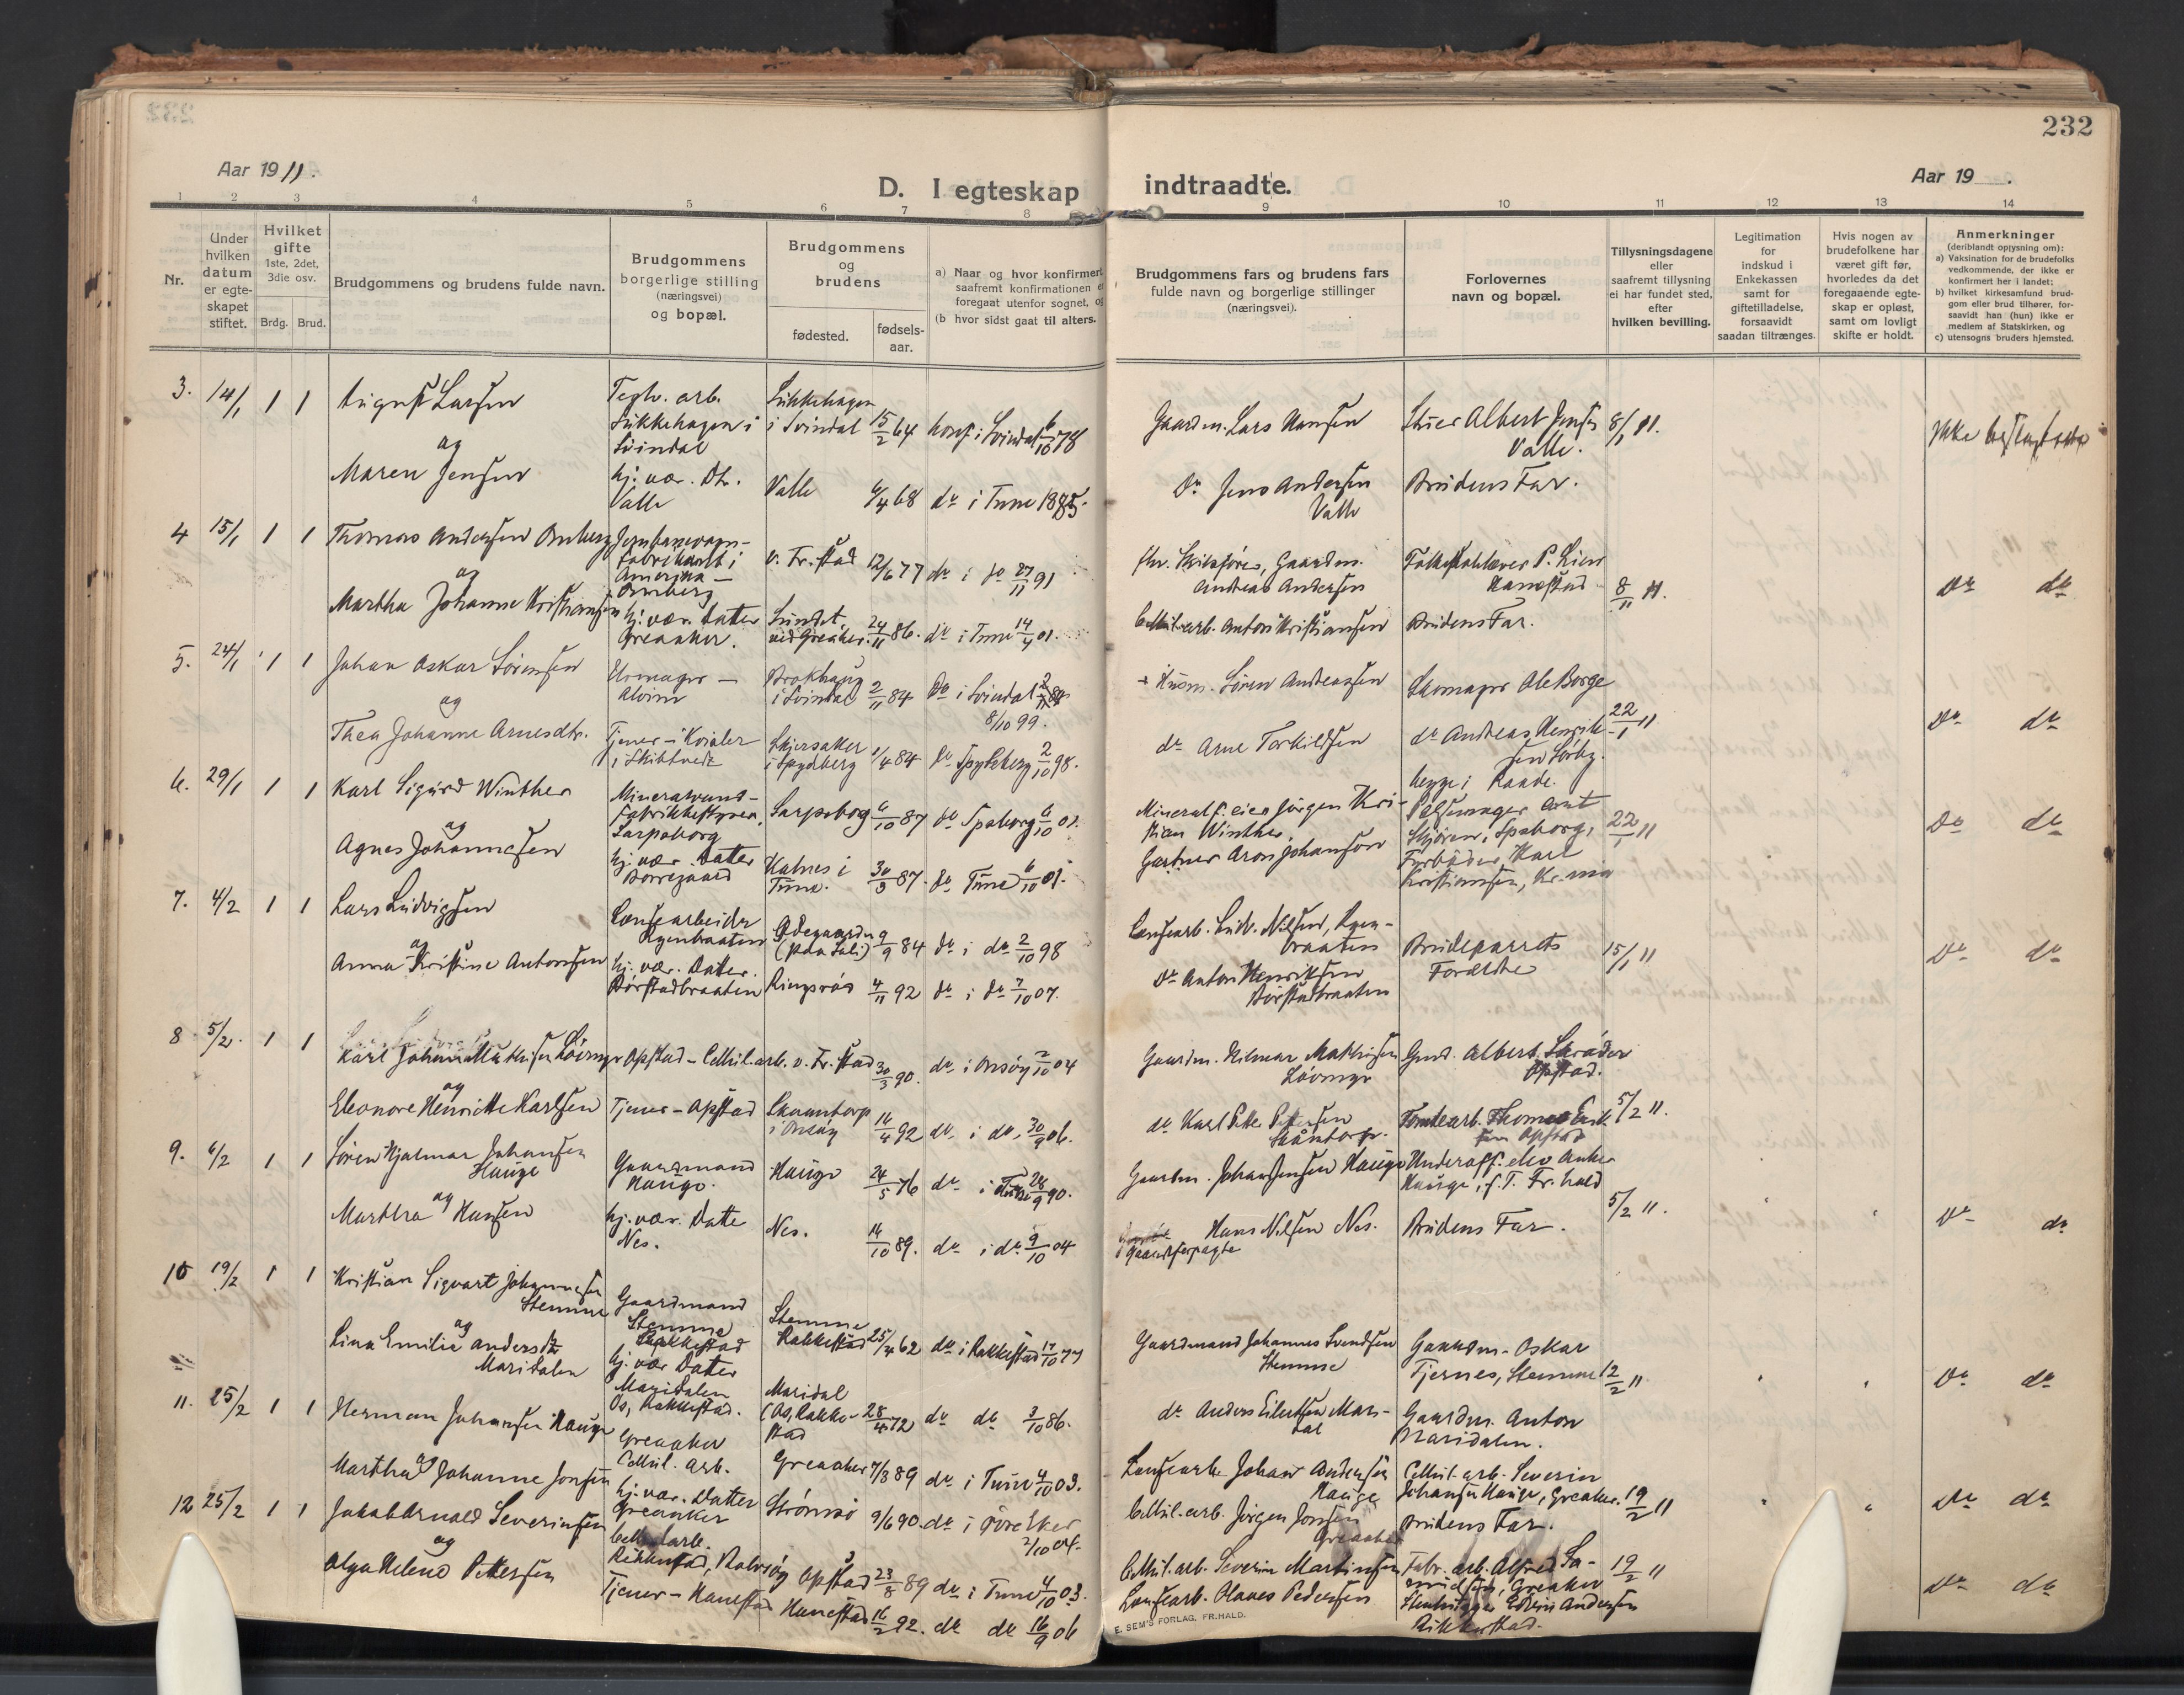 232
Aar 1911.
D. I egteskap indtraadte.
Aar 19__.
1 2 3 4 5 6 7 8 9 10 11 12 13 14
Nr.
Under hvilken datum er egte-skapet stiftet.
Hvilket gifte 1ste, 2det, 3die osv.
Brdg. Brud.
Brudgommens og brudens fulde navn.
Brudgommens borgerlige stilling (næringsvei) og bopæl.
Brudgommens og brudens
fødested.
fødsels-aar.
a) Naar og hvor konfirmert saafremt konfirmationen foregaat utenfor sognet, og
(b hvor sidst gaat til alters.
Brudgommens fars og brudens fars fulde navn og borgerlige stillinger (næringsvei).
Forlovernes navn og bopæl.
Tillysningsdagene eller saafremt tillysning ei har fundet sted, efter hvilken bevilling.
Legitimation for indskud i Enkekassen samt for giftetilladelse, forsaavidt saadan tiltrænges.
Hvis nogen av brudefolkene har været gift før, hvorledes da det foregaaende egte-skap er opløst, samt om lovligt skifte er holdt.
Anmerkninger (deriblandt oplysning om):
a) Vaksination for de brudefolks vedkommende, der ikke er konfirmert her i landet;
b) hvilket kirkesamfund brud-gom eller brud tilhører, for-saavidt han (hun) ikke er medlem af Statskirken, og
c) utensogns bruders hjemsted.
3. 14/1 1 1 August Larsen
Teglv. arb. Sikkehagen i Svindal
Sikkehagen i Svindal 15/2 64 konf. i Svindal 6/10 78
Gaardm. Lars Hansen
Albert Jensen Valle. 8/1 11.
Ikke
og
Maren Jensen
hj. vær. Dtr. Valle
Valle 6/4 68 do i Tune 1883.
Do Jens Andersen Valle
Brudens Far.
4 15/1 1 1 Thomas Andersen Omberg
Amerika — Omberg
v. Fr.stad 12/6 77 do i do 27/11 91
Gaardm. Andreas Andersen
P. Lien Hanestad
8/11 11.
Do do
og
Martha Johanne Kristiansen
hj. vær. Datter Greaaker.
Sundet, ved Greaker. 24/11 86. do i Tune 14/4 01.
Cellul-arb. Anton Kristiansen
Brudens Far.
5. 24/1 1 1 Johan Oskar Sørensen
Urmager — Alvim
i Svindal 2/11 84 Do i Svindal
8/10 99.
Husm. Søren Andreassen
Skomager Ole Borge
og
Thea Johanne Arnesdtr.
Tjener — Kvialer i Skibtvedt
i Spydberg 1/4 84 do Spydeberg 2/10 98.
do Arne Torkildsen
do Andreas Henrik-sen Sørby.
begge i Raade.
22/1 11
Do do
6. 29/1 1 1 Karl Sigurd Winther
Mineralvand-Fabrikbestyrer, Sarpsborg
Sarpsborg 6/10 87 do Spsborg 6/10 01.
Mineralf. eier Jørgen Kri-stian Winther
Pølsemager Arnt Skjøren, Spsborg,
22/1 11
Do do
og
Agnes Johannesen
hj. vær. Datter Borregaard
Kalnes i Tune. 30/3 87. do Tune 6/10 01.
Gartner Aron Johansen
Fyrbøder Karl Kristiansen, Kr.nia
7. 4/2 1 1 Lars Ludvigsen
Lænsearbeider
9/9 84 do i do 2/10 98
Lænsearb. Ludv. Nilsen,
Brudeparrets Forældre
15/1 11
Do do
og
Anna Kristine Antonsen
hj. vær. Datter. Børstadbraaten
Ringsrøs 4/11 92 do i do 7/10 07.
Do Anton Henriksen Børstadbraaten
8 5/2. 1 1 Karl Johan Mathisen Løvmyr
Opstad — Cellul.arb.
v. Fr.stad 30/3 90. do i Onsøy 2/10 04
Gaardm. Hilmar Mathisen Løvmyr
Gmd. Albert Skrøder Opstad.
og
Eleonore Henriette Karlsen
Tjener — Opstad
Skaantorp i Onsøy 14/4 92 do. i do. 30/9 06.
do Karl Petter Petersen Skåntorp.
Tomtearb. Thomas Erik-sen Opstad
5/2 11.
9. 6/2 1 1 Søren Hjalmar Johansen Hauge
Gaardmand Hauge.
Hauge 24/5 76 do i Tune 28/9 90.
Gaardm. Johan Jensen Hauge
Underoff. elev Anker Hauge, f. T. Fr. hald
5/2 11.
Do do
og
Marthea Hansen
hj. vær. Datter Nes.
Nes. 14/10 89. do i do 9/10 04
Gaardforpagter Hans Nilsen Nes.
Brudens Far.
10 19/2 1 1 Kristian Sigvart Johannesen Stemme
Gaardmand Stemme Rakkestad
Stemme Rakkestad 25/4 62 do i Rakkestad 17/10 77
Gaardmand Johannes Svendsen Stemme
Gaardm. Oskar Tjernes, Stemme
12/2 11.
Do do
og
Lina Emilie Andersdtr. Maridalen
hj. vær Datter Maridalen Os, Rakkestad.
Maridal (Os, Rakke-stad 28/4 72 do do 3/10 86.
do Anders Eilertsen Mari-dal
Gaardm. Anton Maridalen.
11. 25/2 1 1 Herman Johansen Hauge
Greaaker Cellul. Arb.
Greaaker 7/3 89 do i Tune 4/10 03.
Lænsearb. Johan Andersen Hauge
Cellul-arb. Severin Johansen Hauge, Greaker.
19/2 11
Do do
og
Martha Johanne Jonsen
hj. vær. Datter Greaaker
Strømsø 9/6 90. do i Øvre Eker 2/10 04.
Cellul.-arb. Jørgen Jonsen Greaaker
Brudens Far.
12 25/2 1 1 Jakob Arnold Severinsen
Cellularb. Rikkestad, Rolvsøy
Opstad 23/8 89 do i Tune 4/10 03.
Cellul.arb. Severin Martinsen
Fabr. arb. Alfred Greaker
19/2 11
Do do
og
Olga Helene Pettersen
Tjener — Hanestad
Hanestad 16/2 92. do do 16/9 06
Lænsearb. Hanes Pedersen
Stenhugger Edvin Andersen Rikkestad.
E. SEM'S FORLAG, FR.HALD.